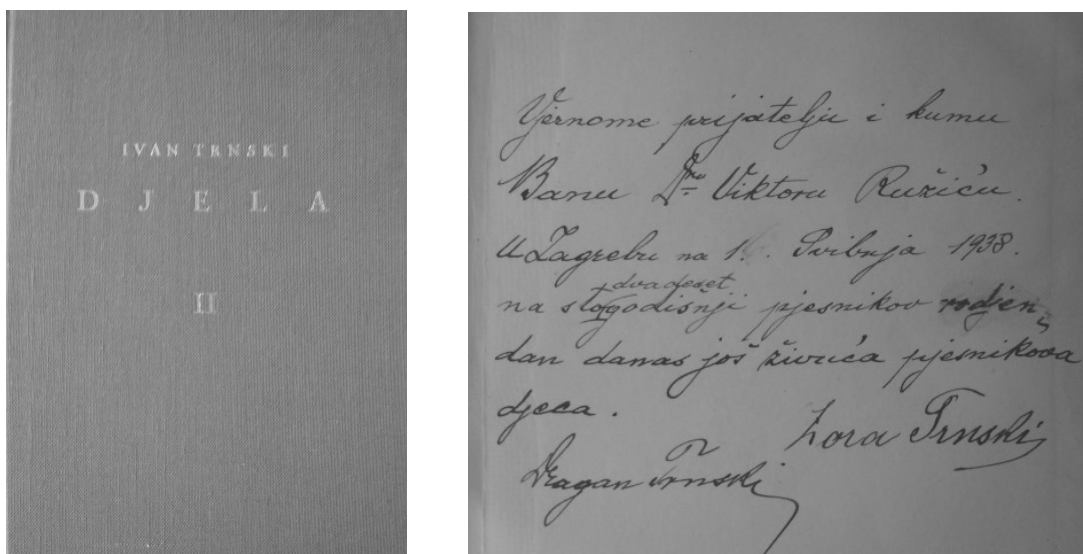 IVAN TRNSKI
DJELA
II
Vjernome prijatelju i kumu
Banu Dru Viktoru Ružiću.
U Zagrebu na 1. Svibnja 1938.
dvadeset
na stogodišnji pjesnikov rodjen
dan danas još živuća pjesnikova
djeca.
Zora Trnski
Dragan Trnski